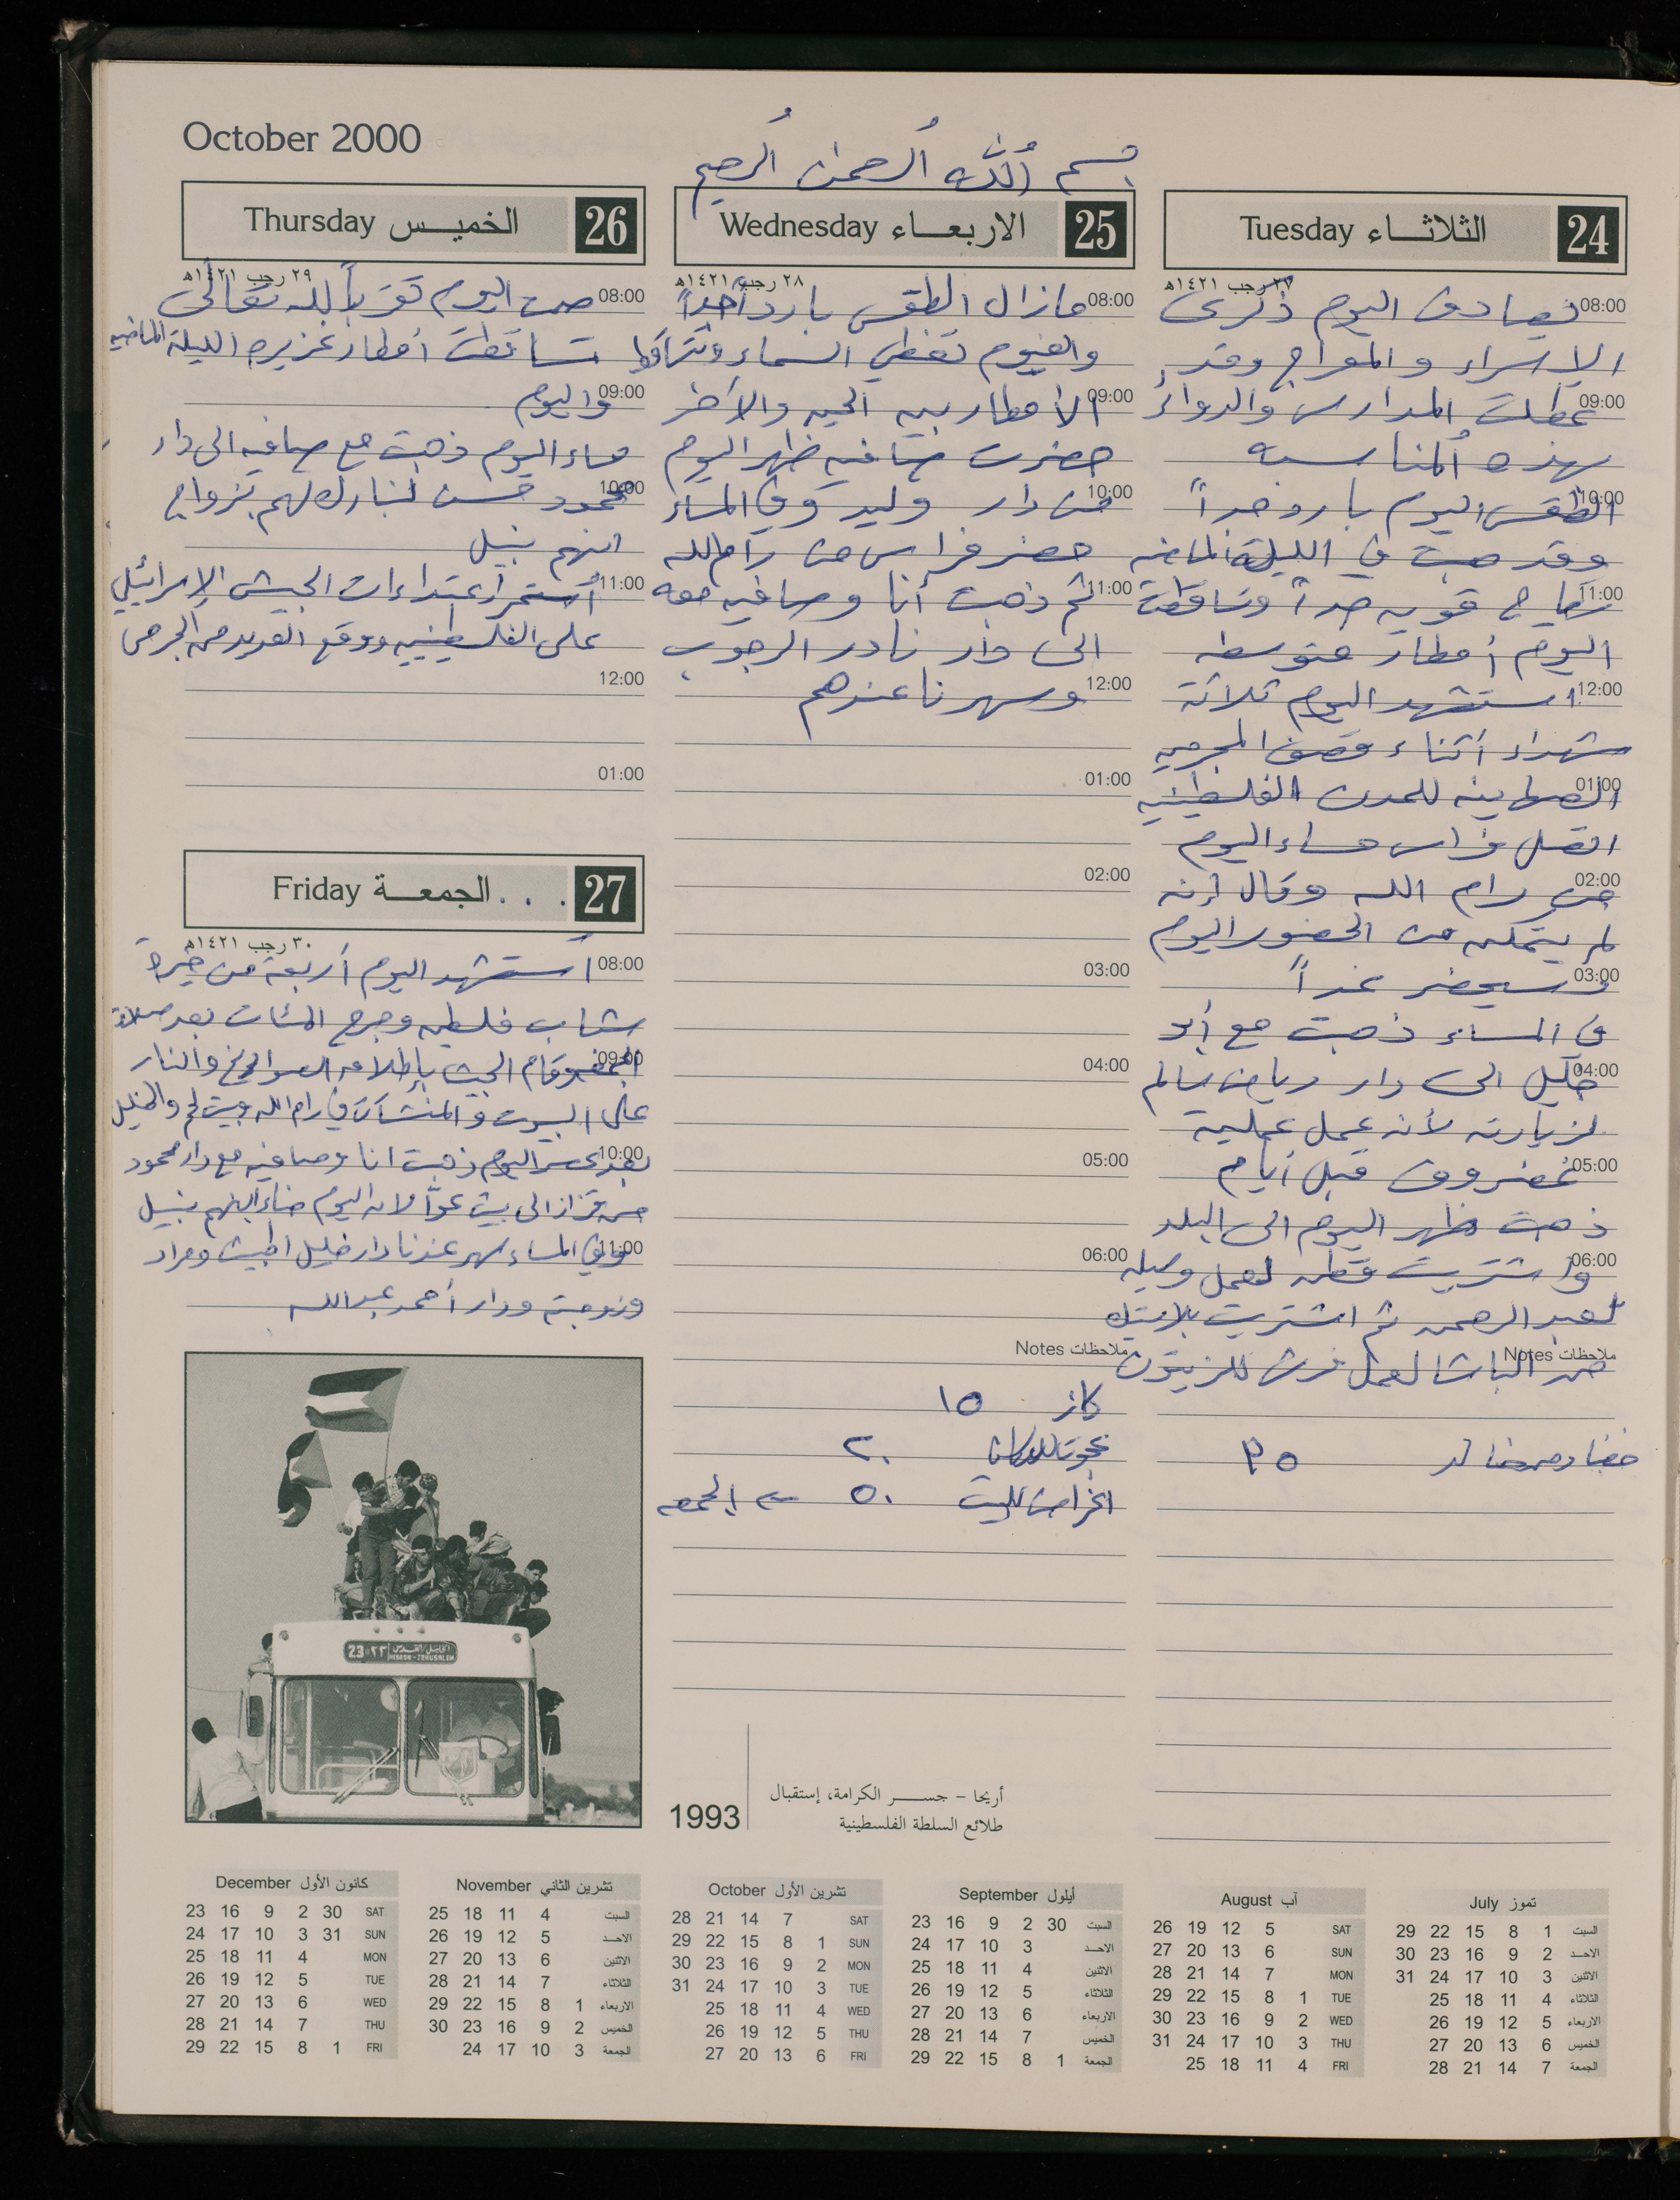 October 2000
بسم الله الرحمن الرحيم
24 الثلاثاء Tuesday
٢٧ رجب ١٤٢١هـ
08:00 تصادف اليوم ذكرى
الإسراء والمعراج وقد
09:00 عطلت المدارس والدوائر
بهذه المناسبة
10:00 الطقس اليوم بارد جداً
وقد هبت في الليلة الماضيه
11:00 رياح قويه جداً وتساقطت
اليوم أمطار متوسطه
12:00 استشهد اليوم ثلاثة
شهداء أثناء قصف المجرمين
01:00 الصهاينه للمدن الفلسطينيه
اتصل فراس مساء اليوم
02:00 من رام الله وقال إنه
لم يتمكن من الحضور اليوم
03:00 وسيحضر غداً
في المساء ذهبت مع أبو
04:00 خليل الى دار رياض سالم
لزيارته لأنه عمل عملية
05:00 غضروف قبل أيام
ذهبت ظهر اليوم الى البلد
06:00 واشتريت قطع لعمل وصله
لعبد الرحمن ثم اشتريت بلاستيك
ملاحظات Notes
من الباشا لعمل فرش للزيتون
٣٥
25 الاربعاء Wednesday
٢٨ رجب ١٤٢١هـ
08:00 مازال الطقس بارد جداً
والغيوم تغطي السماء وتتساقط
09:00 الأمطار بين الحين والآخر
حضرت صافيه ظهر اليوم
10:00 من دار وليد وفي المساء
حضر فراس من رام الله
11:00 ثم ذهبت أنا وصافيه معه
الى دار نادر الرجوب
12:00 وسهرنا عندهم
01:00
02:00
03:00
04:00
05:00
06:00
ملاحظات Notes
كاز ١٥
٢٠
اغراض للبيت ٥٠ الجمعه
26 الخميس Thursday
٢٩ رجب ١٤٢١هـ
08:00 صمت اليوم تقرباً لله تعالى
تساقطت أمطار غزيره الليلة الماضيه
09:00 واليوم
مساء اليوم ذهبت مع صافيه الى دار
10:00 محمود حسن لنبارك لهم بزواج
ابنهم نبيل
11:00 أستمر اعتداءات الجيش الإسرائيلي
على الفلسطينيين ووقع العديد من الجرحى
12:00
01:00
27 الجمعة Friday
٣٠ رجب ١٤٢١هـ
08:00 أستشهد اليوم أربعة من خيرة
شباب فلسطين وجرح المئات بعد صلاة
09:00 الجمعه وقام الجيش بإطلاق الصواريخ والنار
على البيوت والمنشآت في رام الله وبيت لحم والخليل
10:00 بعد عصر اليوم ذهبت انا وصافيه مع دار محمود
حسن قزاز الى بيت عوا لان اليوم ابنهم نبيل
11:00 وفي المساء سهر عندنا دار خليل اطبيش ومراد
وزوجته ودار أحمد عبدالله
23 ٢٣ الخليل القدس
HEBRON - JERUSALEM
1993
أريحا - جســر الكرامة، إستقبال
طلائع السلطة الفلسطينية
تموز July
السبت 1 8 15 22 29
الاحـد 2 9 16 23 30
الاثنين 3 10 17 24 31
الثلاثاء 4 11 18 25
الاربعاء 5 12 19 26
الخميس 6 13 20 27
الجمعة 7 14 21 28
آب August
SAT 5 12 19 26
SUN 6 13 20 27
MON 7 14 21 28
TUE 1 8 15 22 29
WED 2 9 16 23 30
THU 3 10 17 24 31
FRI 4 11 18 25
أيلول September
السبت 30 2 9 16 23
الاحـد 3 10 17 24
الاثنين 4 11 18 25
الثلاثاء 5 12 19 26
الاربعاء 6 13 20 27
الخميس 7 14 21 28
الجمعة 1 8 15 22 29
تشرين الأول October
SAT 7 14 21 28
SUN 1 8 15 22 29
MON 2 9 16 23 30
TUE 3 10 17 24 31
WED 4 11 18 25
THU 5 12 19 26
FRI 6 13 20 27
تشرين الثاني November
السبت 4 11 18 25
الاحـد 5 12 19 26
الاثنين 6 13 20 27
الثلاثاء 7 14 21 28
الاربعاء 1 8 15 22 29
الخميس 2 9 16 23 30
الجمعة 3 10 17 24
كانون الأول December
SAT 30 2 9 16 23
SUN 31 3 10 17 24
MON 4 11 18 25
TUE 5 12 19 26
WED 6 13 20 27
THU 7 14 21 28
FRI 1 8 15 22 29